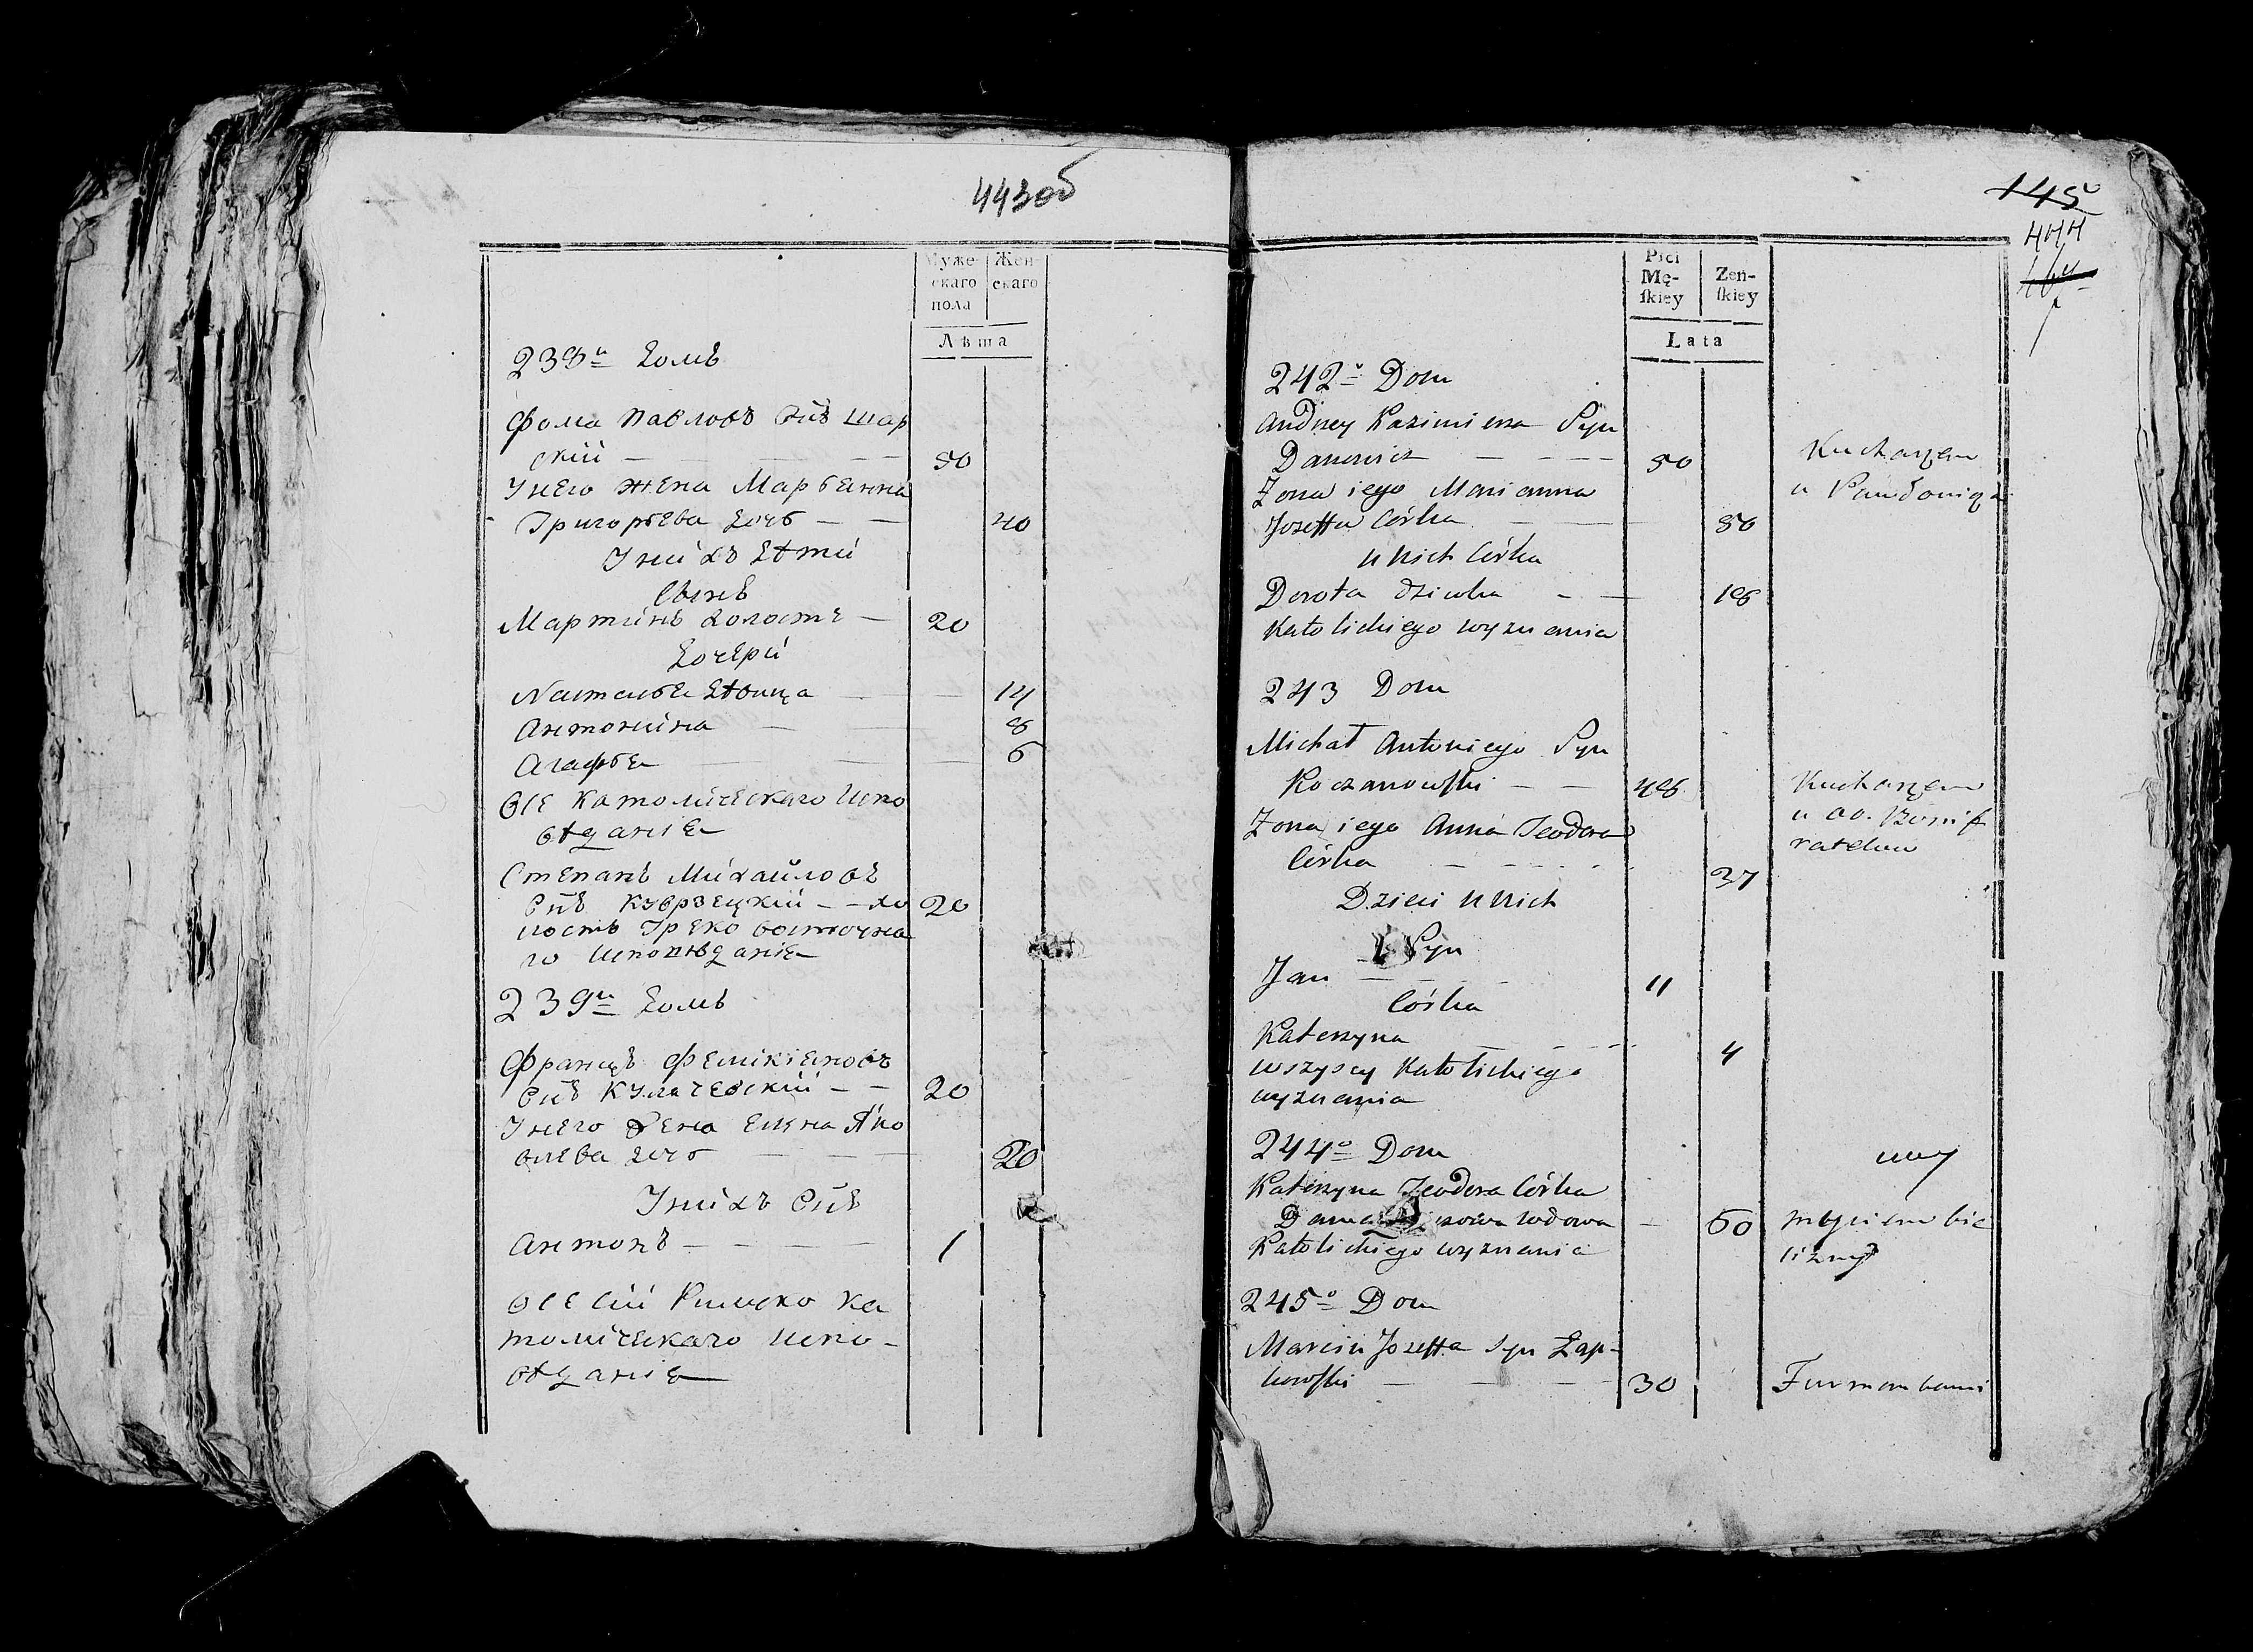 443об
Муже-
скаго
пола
Жен-
скаго
Лѣта
238й домъ
Фома Павловъ снъ Шар
скiй — 50
У него жена Марьянна
Григорьева дочь — 40
У них дѣти
Сынъ
Мартинъ холостъ — 20
Дочери
Наталья дѣвица — 14
Антонина — 8
Агафья — 6
Все католическаго испо
вѣданiя
Степанъ Михайловъ
снъ Кубрзецкiй — хо 20
лостъ Греко восточна
го исповѣданiя
239й домъ
Францъ Феликiановъ
снъ Кулачевскiй — 20
У него жена Елена Яко
влева дочь — 20
У нихъ снъ
Антонъ — 1
Все сiи Римско ка
толическаго испо-
вѣданiя
145
444
Płci
Mę-
ſkiey
Zeń-
ſkiey
Lata
242o Dom
Andrzey Kazimierza Syn
Danowicz — 50 Kucharzem
Zona iego Marianna u
Jozeffa Córka — 50
u Nich Córka
Dorota dziewka — 18
Katolickiego wyznania
243 Dom
Michał Antoniego Syn
Koczanowſki — 48 Kucharzem
Zona iego Anna Teodora u oo. Bonif
Córka — 37 ratelow
Dzieci u Nich
Syn
Jan — 11
Córka
Katerzyna — 4
wszyscy Katolickiego
wyznania
244o Dom
Katerzyna Teodora Córka
wdowa — 60 myciem bie
Katolickiego wyznania lizny
245o Dom
Marcin Jozeffa Syn Łap-
kowſki — 30 Furmankami